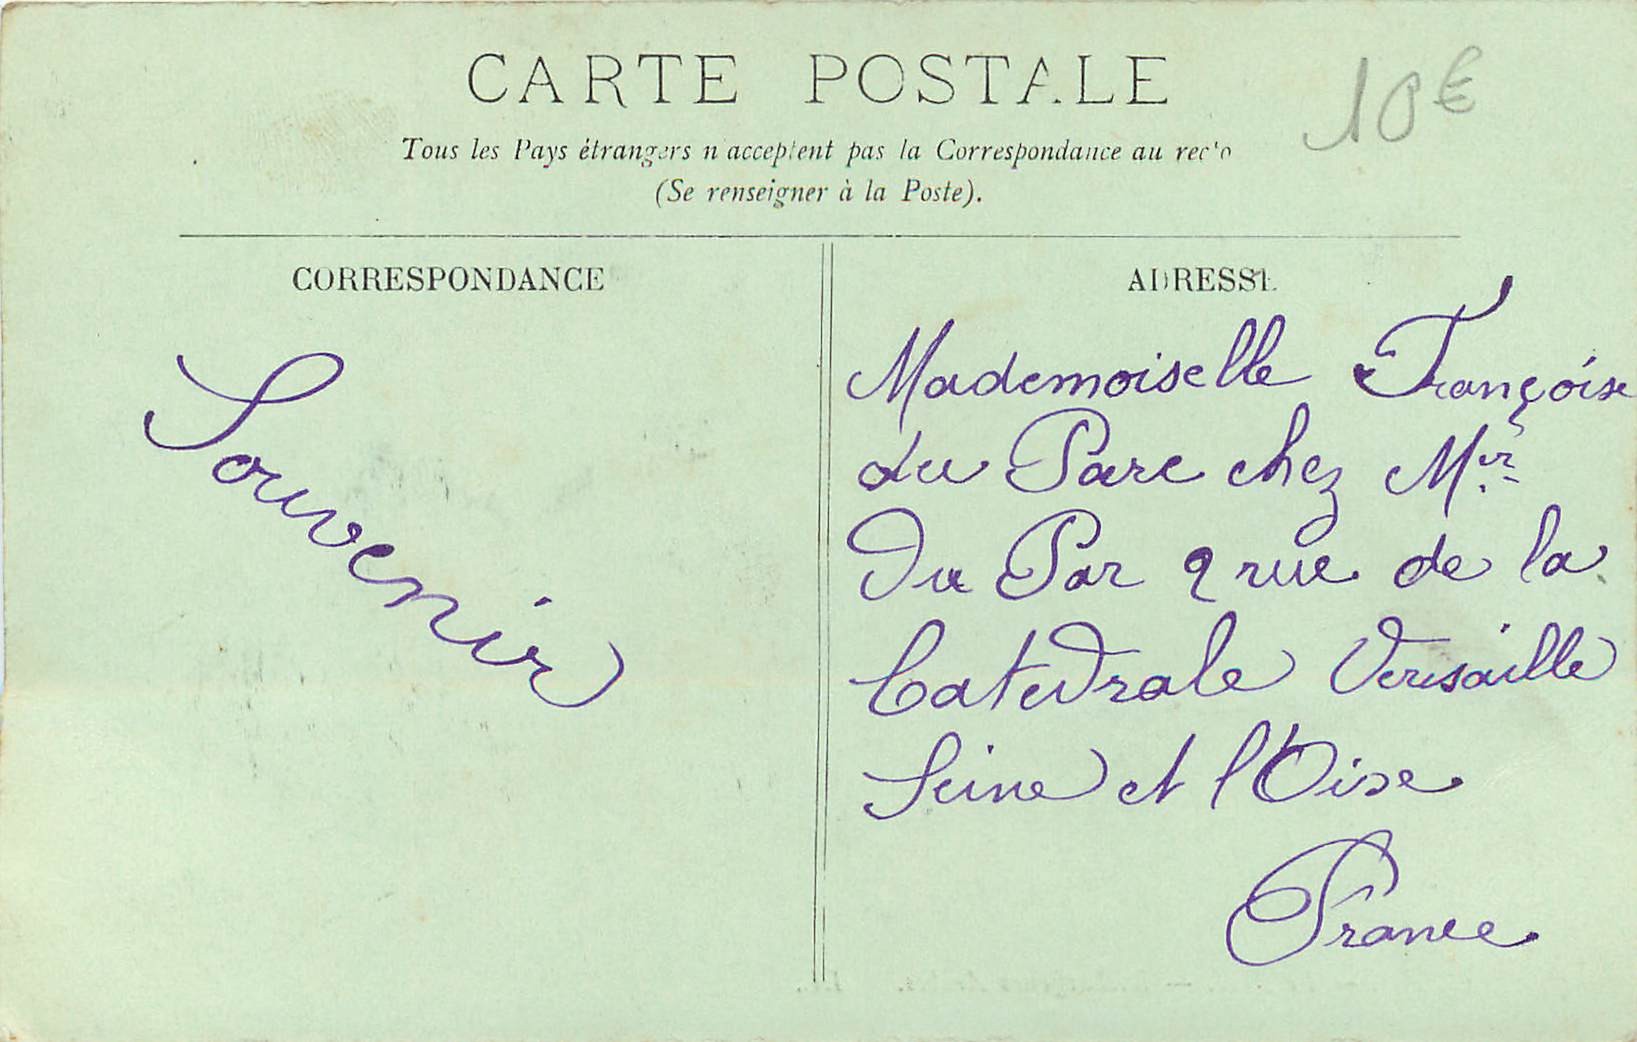 CARTE POSTALE
10€
Tous les Pays étrangers n'acceptent pas la Correspondance au recto
(Se renseigner à la Poste).
CORRESPONDANCE
ADRESSE
Souvenir
Mademoiselle Françoise
du Parc chez Mr
Du Par 9 rue de la
Catedrale Versaille
Seine et l'Oise
France